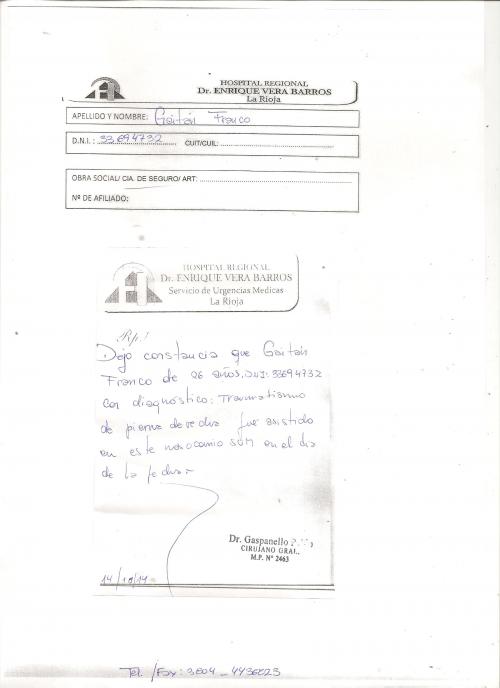 HOSPITAL REGIONAL
Dr. ENRIQUE VERA BARROS
La Rioja
APELLIDO Y NOMBRE: Gaitán Franco
D.N.I.: 33694732 CUIT/CUIL:
OBRA SOCIAL/ CIA. DE SEGURO/ ART:
Nº DE AFILIADO:
HOSPITAL REGIONAL
Dr. ENRIQUE VERA BARROS
Servicio de Urgencias Medicas
La Rioja
Rp./
Dejo constancia que Gaitán
Franco de 26 años, DNI: 33694732
con diagnóstico: Traumatismo
de pierna derecha fue asistido
en este nosocomio en el día
de la fecha.-
Dr. Gaspanello
CIRUJANO GRAL.
M.P. Nº 2463
14/10/14
Tel. /Fax: 3804 - 4436823